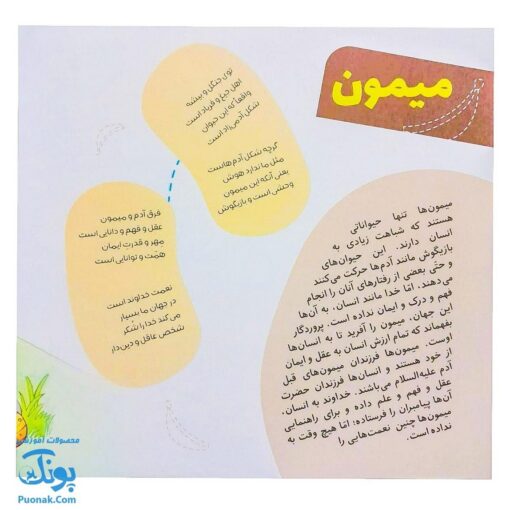 میمون
توی جنگل و بیشه
اهل جیغ و فریاد است
واقعاً که این حیوان
شکل آدمیزاد است
گرچه شکل آدم هاست
مثل ما ندارد هوش
یعنی آنکه این میمون
وحشی است و بازیگوش
فرق آدم و میمون
عقل و فهم و دانایی است
مهر و قدرت ایمان
همّت و توانایی است
نعمت خداوند است
در جهان ما بسیار
می کند خدا را شکر
شخص عاقل و دین دار
میمون‌ها تنها حیواناتی
هستند که شباهت زیادی به
انسان دارند. این حیوان‌های
بازیگوش مانند آدم‌ها حرکت می‌کنند
و حتّی بعضی از رفتارهای آنان را انجام
می‌دهند، امّا خدا مانند انسان، به آن‌ها
فهم و درک و ایمان نداده است. پروردگار
این جهان، میمون را آفرید تا به انسان‌ها
بفهماند که تمام ارزش انسان به عقل و ایمان
اوست. میمون‌ها فرزندان میمون‌های قبل
از خود هستند و انسان‌ها فرزندان حضرت
آدم علیه‌السلام می‌باشند. خداوند به انسان،
عقل و فهم و علم داده و برای راهنمایی
آن‌ها پیامبران را فرستاده؛ امّا هیچ وقت به
میمون‌ها چنین نعمت‌هایی را
نداده است.
محصولات آموزشی
پونک
Puonak.Com